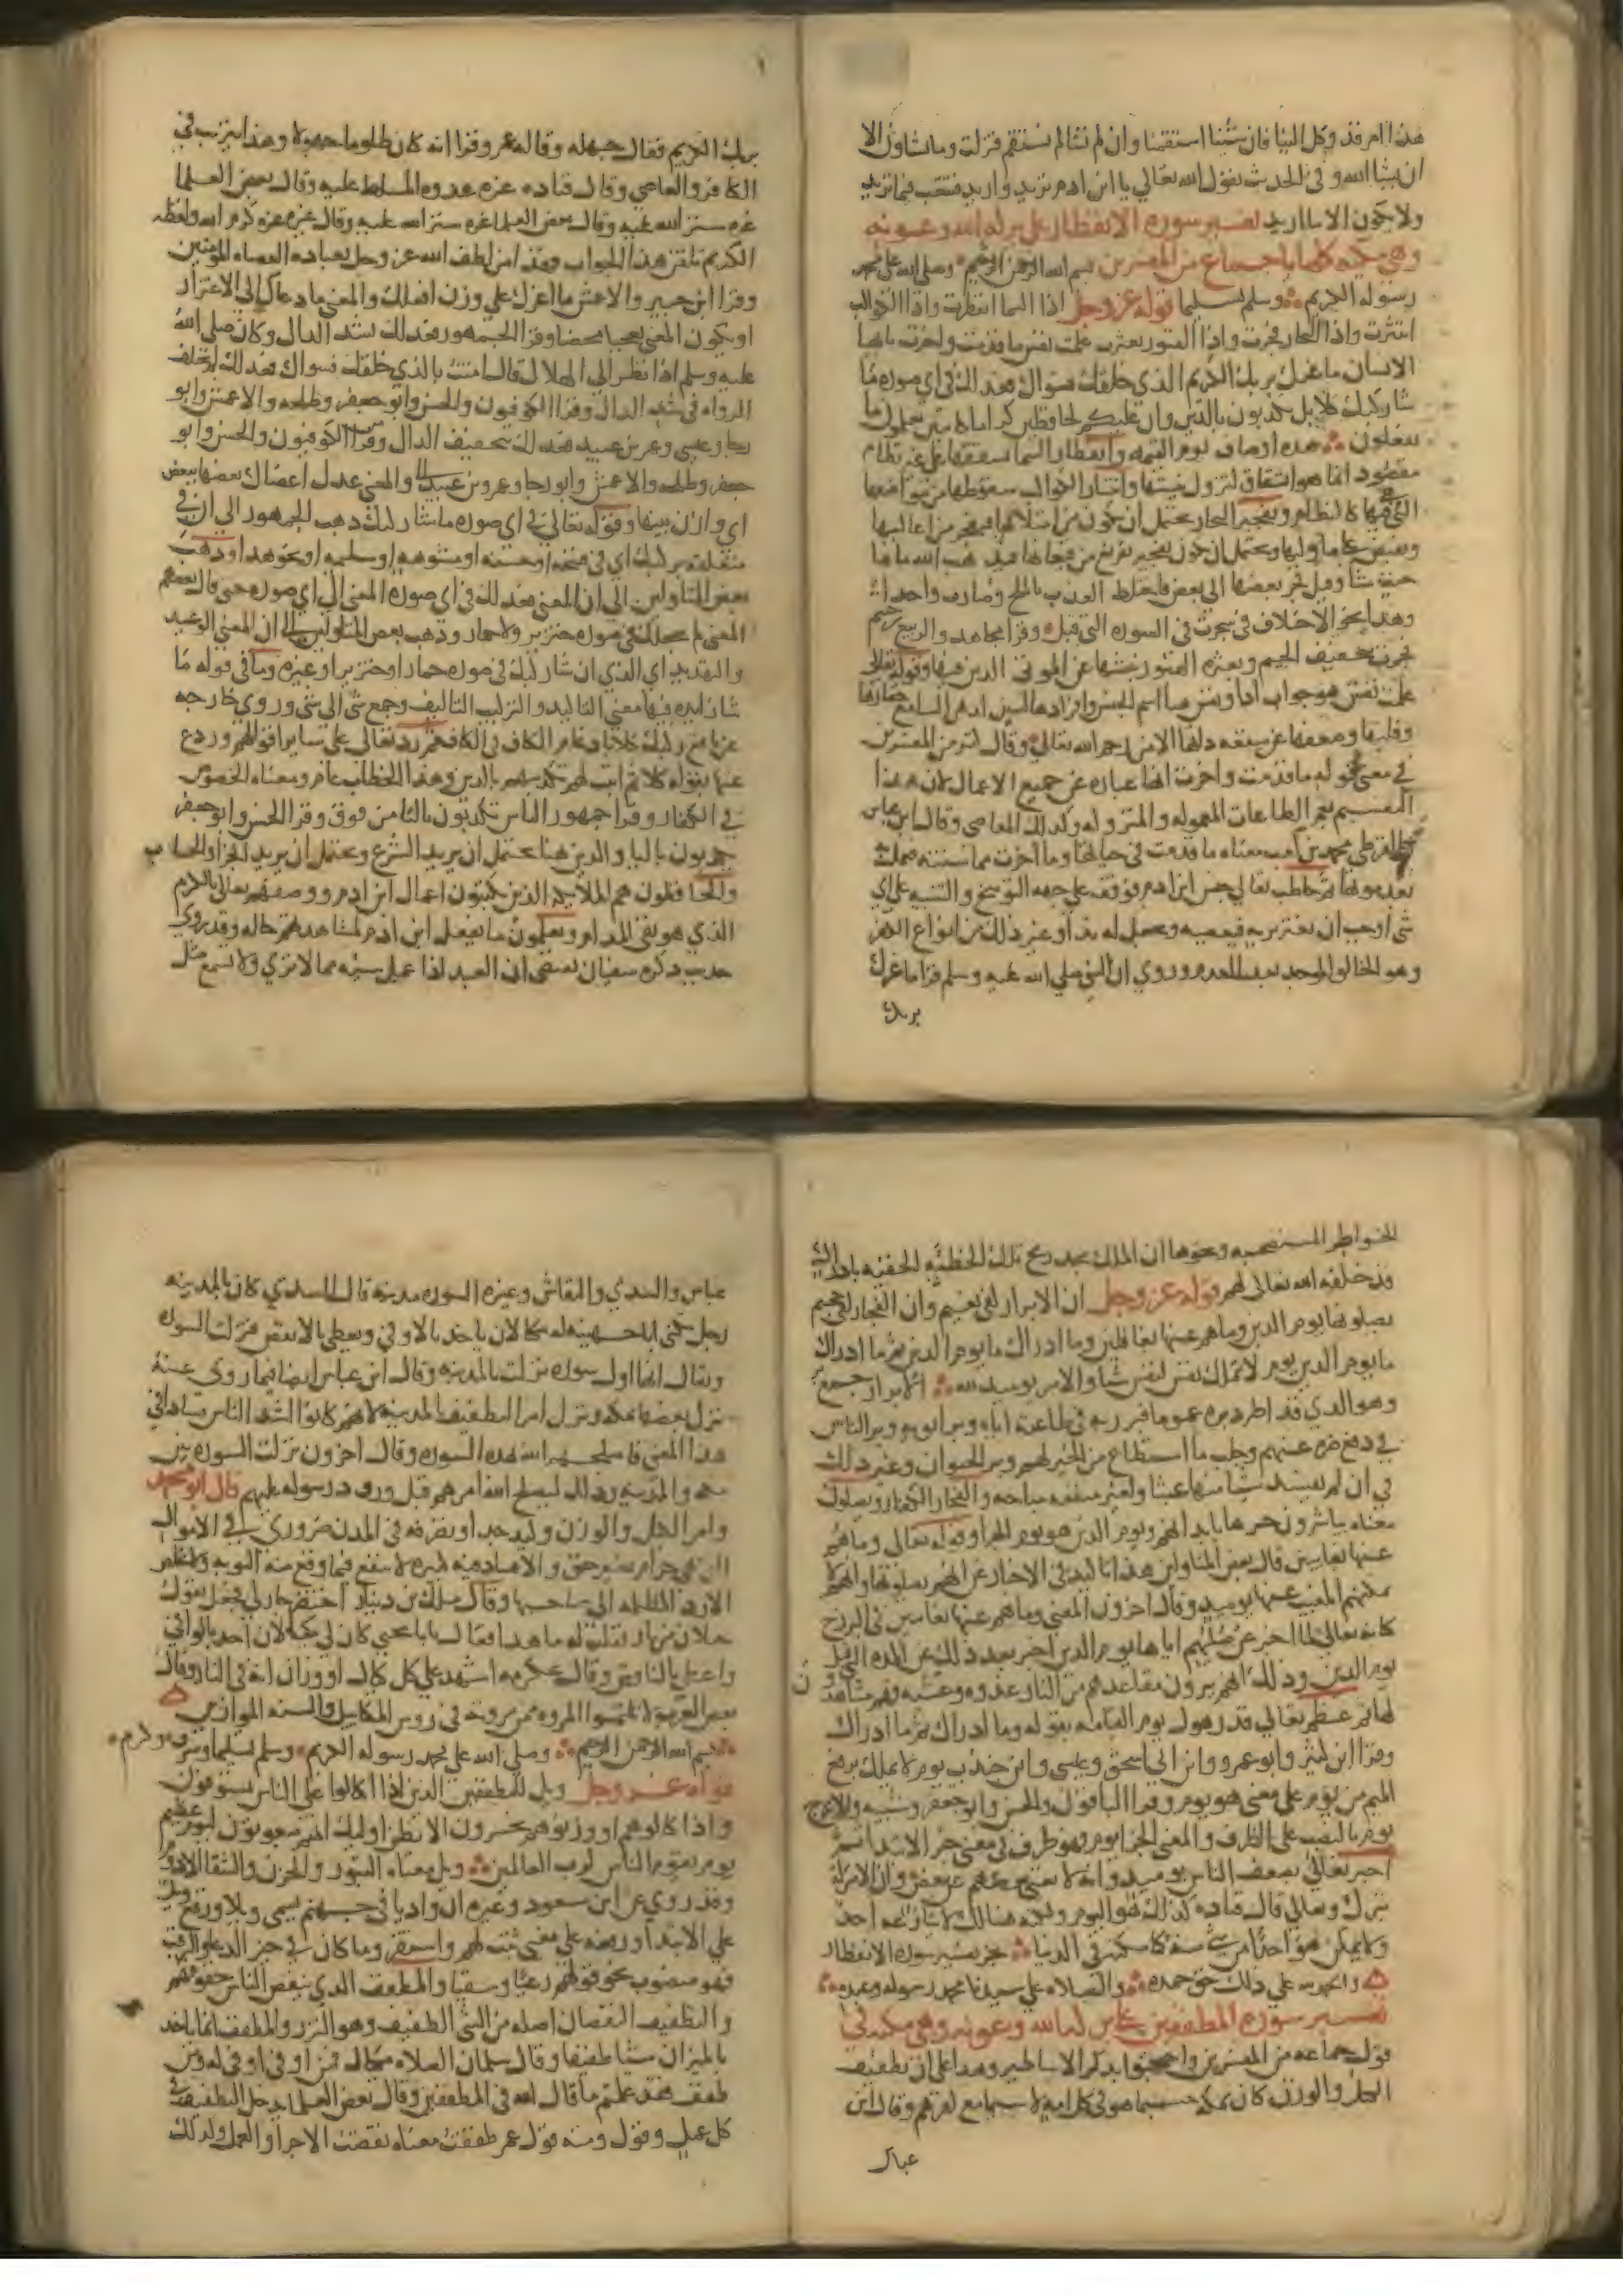 هذا امر قد وكل الينا فان شئنا استقمنا وان لم نشا لم نستقم فنزلت وما تشاون الا
ان يشا الله وفي الحديث يقول الله تعالي يا ابن ادم تريد واريد فتتعب فيما تريد
ولا يكون الا ما اريد تفسير سورة الانفطار على بركه الله وعونه
وهي مكيه كلها باجماع من المفسرين بسم الله الرحمن الرحيم وصلى الله على محمد
رسوله الكريم وسلم تسليما قوله عز وجل اذا السما انفطرت واذا الكواكب
انتثرت واذا البحار فجرت واذا القبور بعثرت علمت نفس ما قدمت واخرت يا ايها
الانسان ما غرك بربك الكريم الذي خلقك فسواك فعدلك في اي صوره ما
شا ركبك كلا بل تكذبون بالدين وان عليكم لحافظين كراما كاتبين يعلمون ما
تفعلون هذه اوصاف يوم القيمه وانفطار السما تشققها على غير نظام
مقصود انما هو انشقاق لتزول بنيتها وانتثار الكواكب سقوطها من مواضعها
التي فيها كالنظام وتفجير البحار يحتمل ان يكون من امتلائها فتفجر من اعاليها
وتفيض على ما وليها ويحتمل ان يكون تفجير تفريغ من قيعانها فيذهب الله ماها
حيث شا وقيل فجر بعضها الى بعض فاختلط العذب بالملح وصارت واحدا
وهذا نحو الاختلاف في سجرت في السوره التي قبل وقرا مجاهد والربيع بن خيثم
فجرت بتخفيف الجيم وبعثره القبور نبشها عن الموتى الذين فيها وقوله تعالى
علمت نفس هو جواب اذا ونفس هنا اسم الجنس وافرادها لتبين لذهن السامع حقارتها
وقلتها وضعفها عن منفعه ذاتها الا من رحم الله تعالى وقال كثير من المفسرين
في معنى قوله ما قدمت واخرت انها عباره عن جميع الاعمال لان هذا
التقسيم يعم الطاعات المعموله والمتروكه وكذلك المعاصي وقال ابن عباس
والقرظي محمد بن كعب معناه ما قدمت في حياتها وما اخرت مما سنته فعمل به
بعد موتها ثم خاطب تعالى جنس ابن ادم فوقفه على جهه التوبيخ والتنبيه على اي
شي اوجب ان يغتر بربه فيعصيه ويجعل له ندا وغير ذلك من انواع الكفر
وهو الخالق الموجد بعد العدم وروي ان النبي صلى الله عليه وسلم قرا ما غرك
بربك
بربك الكريم فقال جهله وقاله عمر وقرا انه كان ظلوما جهولا وهذا يترتب في
الكافر والعاصي وقال قتاده غره عدوه المسلط عليه وقال بعض العلما
غره ستر الله عليه وقال بعض العلما غره ستر الله عليه وقال غيره غره كرم الله ولفظه
الكريم تلقن هذا الجواب وهذا من لطف الله عز وجل بعباده العصاه المومنين
وقرا ابن جبير والاعمش ما اغرك على وزن افعلك والمعنى ما دعاك الى الاغترار
او يكون المعنى تعجبا محضا وقرا الجمهور فعدلك بشد الدال وكان صلى الله
عليه وسلم اذا نظر الى الهلال قال امنت بالذي خلقك فسواك فعدلك لم يختلف
الرواه في شد الدال وقرا الكوفيون والحسن وابو جعفر وطلحه والاعمش وابو
رجا وعيسى وعمر بن عبيد فعدلك بتخفيف الدال وقرا الكوفيون والحسن وابو
جعفر وطلحه والاعمش وابو رجا وعمرو بن عبيد والمعنى عدل اعضاك بعضها ببعض
اي وازن بينها وقوله تعالى في اي صوره ما شا ركبك ذهب الجمهور الى ان في
متعلقه بركبك اي في قبيحه او حسنه او مشوهه او سليمه او نحو هذا وذهب
بعض المتاولين الى ان المعنى فعدلك في اي صوره المعنى الى اي صوره حتى قال بعضهم
المعنى لم يجعلك في صوره خنزير ولا حمار وذهب بعض المتاولين الى ان المعنى الوعيد
والتهديد اي الذي ان شا ركبك في صوره حمار او خنزير او غيره وما في قوله ما
شا زايده فيها معنى التاكيد والتركيب التاليف وجمع شي الى شي وروي خارجه
عن نافع ركبك كلا بادغام الكاف في الكاف ثم رد تعالى على ساير اقوالهم وردع
عنها بقوله كلا ثم اثبت لهم تكذيبهم بالدين وهذا الخطاب عام ومعناه الخصوص
في الكفار وقرا جمهور الناس تكذبون بالتا من فوق وقرا الحسن وابو جعفر
يكذبون باليا والدين هنا يحتمل ان يريد الشرع ويحتمل ان يريد الجزا والحساب
والحافظون هم الملايكه الذين يكتبون اعمال ابن ادم ووصفهم تعالى بالكرم
الذي هو نفي المذام ويعلمون ما يفعل ابن ادم لمشاهدتهم حاله وقد روي
حديث ذكره سفيان يقتضي ان العبد اذا عمل سيئه مما لا ترى ولا تسمع مثل
الخواطر المستصحبه ونحوها ان الملك يجد ريح تلك الخطيئه الخفيه بادراك
قد خلقه الله تعالى لهم قوله عز وجل ان الابرار لفي نعيم وان الفجار لفي جحيم
يصلونها يوم الدين وما هم عنها بغائبين وما ادراك ما يوم الدين ثم ما ادراك
ما يوم الدين يوم لا تملك نفس لنفس شيا والامر يوميد لله الابرار جمع بر
وهو الذي قد اطرد بره عموما فبر ربه في طاعته اياه وبر ابويه وبر الناس
في دفع ضره عنهم وجلب ما استطاع من الخير لهم وبر الحيوان وغير ذلك
في ان لم يفسد شيا منها عبثا ولغير منفعه مباحه والفجار الكفار ويصلون
معناه يباشرون حرها بابدانهم ويوم الدين هو يوم الجزا وقوله تعالى وما هم
عنها بغايبين قال بعض المتاولين هذا تاكيد في الاخبار عن انهم يصلونها وانهم لا
يمكنهم المغيب عنها يوميد وقال اخرون المعنى وما هم عنها بغايبين في البرزخ
كانه تعالى لما اخبر عن صليهم اياها يوم الدين اخبر بعد ذلك عن المده التي قبل
يوم الدين وذلك انهم يرون مقاعدهم من النار غدوه وعشيه فهم مشاهدون
لها ثم عظم تعالى قدر هول يوم القيامه بقوله وما ادراك ثم ما ادراك
وقرا ابن كثير وابو عمرو وابن ابي اسحق وعيسى وابن جندب يوم لا تملك برفع
الميم من يوم على معنى هو يوم وقرا الباقون والحسن وابو جعفر وشيبه والاعرج
يوم بالنصب على الظرف والمعنى الجزا يوم فهو ظرف في معنى خبر الابتدا ثم
اخبر تعالى بضعف الناس يوميد وانه لا يغني بعضهم عن بعض وان الامر له
تبارك وتعالى قال قتاده كذلك هو اليوم ولكنه هنالك لا ينازعه احد
ولا يمكن هو احدا من شي منه كما يمكنه في الدنيا نجز تفسير سورة الانفطار
والحمد لله على ذلك حق حمده والصلاه على سيدنا محمد رسوله وعبده
تفسير سوره المطففين بحمد الله وعونه وهي مكيه في
قول جماعه من المفسرين واحتجوا بذكر الاساطير وهذا على ان تطفيف
الكيل والوزن كان بمكه حسبما هو في كل امه لا سيما مع كفرهم وقال ابن
عباس
عباس والسدي والنقاش وغيره السوره مدنيه قال السدي كان بالمدينه
رجل يكنى ابا جهينه له مكيالان ياخذ بالاوفى ويعطي بالانقص فنزلت السوره
ويقال انها اول سوره نزلت بالمدينه وقال ابن عباس ايضا فيما روي عنه
نزل بعضها بمكه ونزل امر التطفيف بالمدينه لانهم كانوا اشد الناس فسادا في
هذا المعنى فاصلحهم الله بهذه السوره وقال اخرون نزلت السوره بين
مكه والمدينه وذلك ليصلح الله امرهم قبل ورود رسوله عليهم قال ابو محمد
وامر الكيل والوزن وكيد جدا وتصرفه في المدن ضروري في الاموال
التي هي حرام بغير حق والفساد فيه كبيره لا ينفع فيما وقع منه التوبه ولا يخلص
الا رد المظلمه الى صاحبها وقال ملك بن دينار احتضر جار لي فجعل يقول
جبلان من نار فقلت له ما هذا فقال يا ابا يحيى كان لي مكيالان اخذ بالوافي
واعطي بالناقص وقال عكرمه اشهد على كل كيال او وزان انه في النار وقال
بعض العرب لا تلتمسوا المروه ممن مروته في روس المكاييل والسنه الموازين
بسم الله الرحمن الرحيم وصلى الله على محمد رسوله الكريم وسلم تسليما وشرف وكرم
قوله عز وجل ويل للمطففين الذين اذا اكتالوا على الناس يستوفون
واذا كالوهم او وزنوهم يخسرون الا يظن اولئك انهم مبعوثون ليوم عظيم
يوم يقوم الناس لرب العالمين ويل معناه الثبور والحزن والشقا الادوم
وقد روي عن ابن مسعود وغيره ان واديا في جهنم يسمى ويلا ورفع ويل
على الابتدا ورفعه على معنى ثبت لهم واستقر وما كان في حيز الدعا والترقب
فهو منصوب نحو قولهم رعيا وسقيا والمطفف الذي ينقص الناس حقوقهم
والتطفيف النقصان اصله من الشي الطفيف وهو النزر والمطفف انما ياخذ
بالميزان شيا طفيفا وقال سلمان الصلاه مكيال فمن اوفى اوفي له ومن
طفف فقد علمتم ما قال الله في المطففين وقال بعض العلما يدخل التطفيف في
كل عمل وقول ومنه قول عمر طففت معناه نقصت الاجر او العمل وكذلك